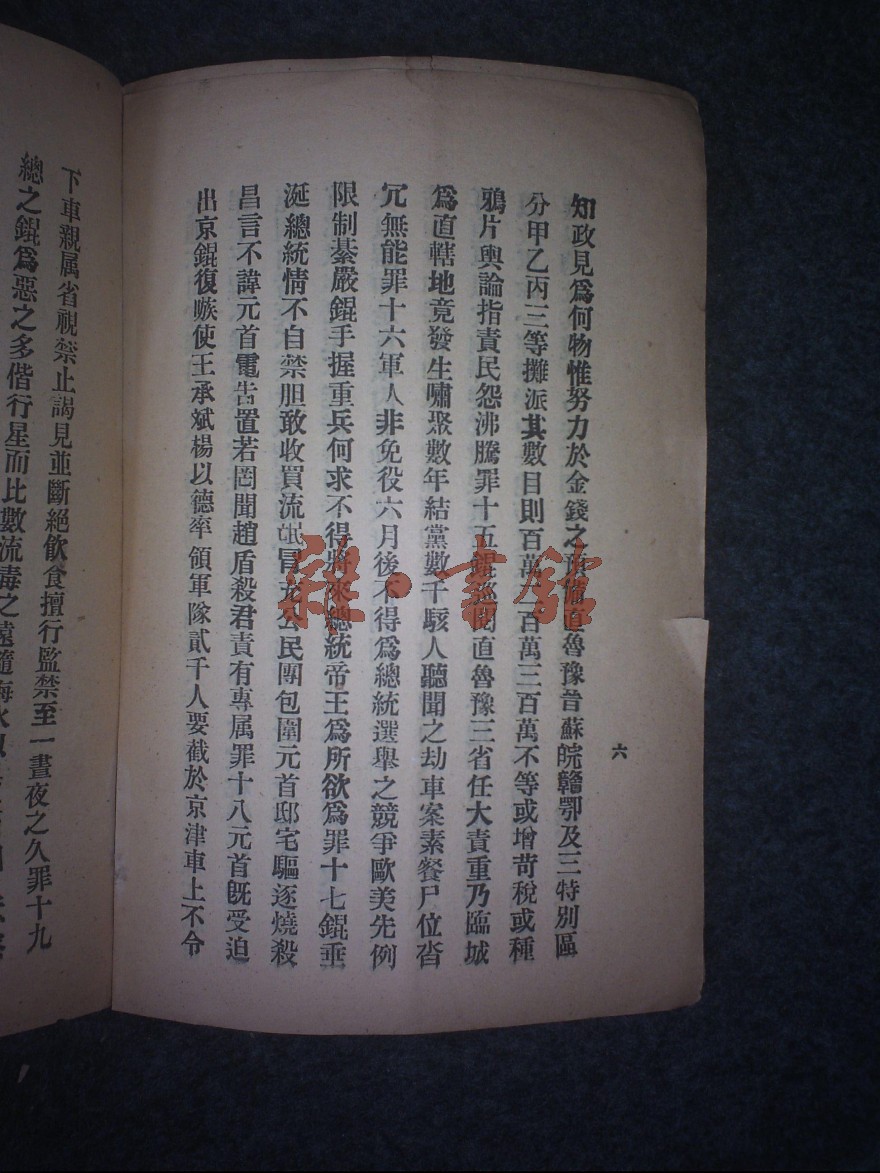 知政見爲何物惟努力於金錢之預備直魯豫晋蘇皖贛鄂及三特別區
分甲乙丙三等攤派其數目則百萬二百萬三百萬不等或增苛稅或種
鴉片輿論指責民怨沸騰罪十五錕巡閱直魯豫三省任大責重乃臨城
爲直轄地竟發生嘯聚數年結黨數千駭人聽聞之劫車案素餐尸位沓
冗無能罪十六軍人非免役六月後不得爲總統選舉之競爭歐美先例
限制綦嚴錕手握重兵何求不得將來總統帝王爲所欲爲罪十七錕垂
涎總統情不自禁胆敢收買流氓冒充公民團包圍元首邸宅驅逐燒殺
昌言不諱元首電告置若罔聞趙盾殺君責有專属罪十八元首旣受迫
出京錕復嗾使王承斌楊以德率領軍隊貳千人要截於京津車上不令
六
下車親属省視禁止謁見並斷絕飲食擅行監禁至一晝夜之久罪十九
總之錕爲惡之多偕行星而比數流毒之遠隨海水
羅·書館